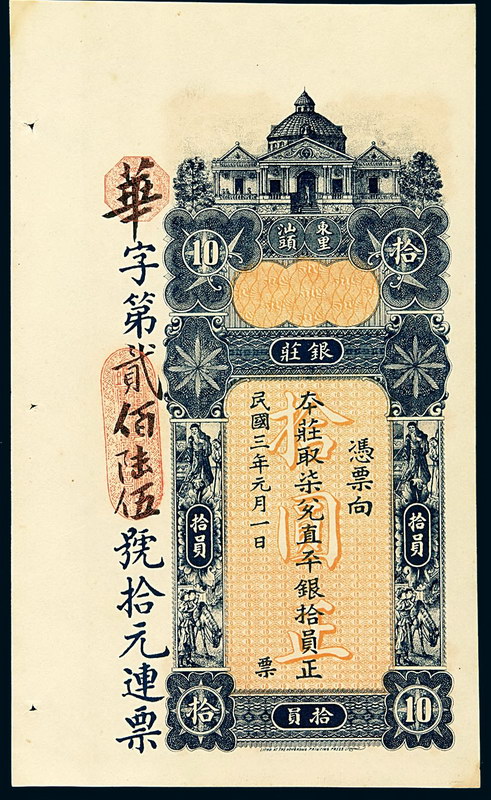 10
拾
東里
汕頭
銀莊
憑票向
本莊取柒兌直平銀拾員正
民國三年元月一日
票
拾圓正
拾員
拾員
10
拾員
拾
華字第貳佰陸伍號拾元連票